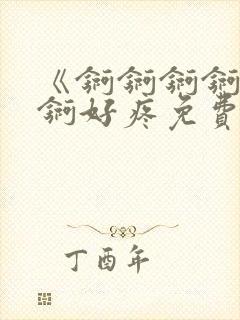 《锕锕锕锕
锕好疼免費
丁酉年